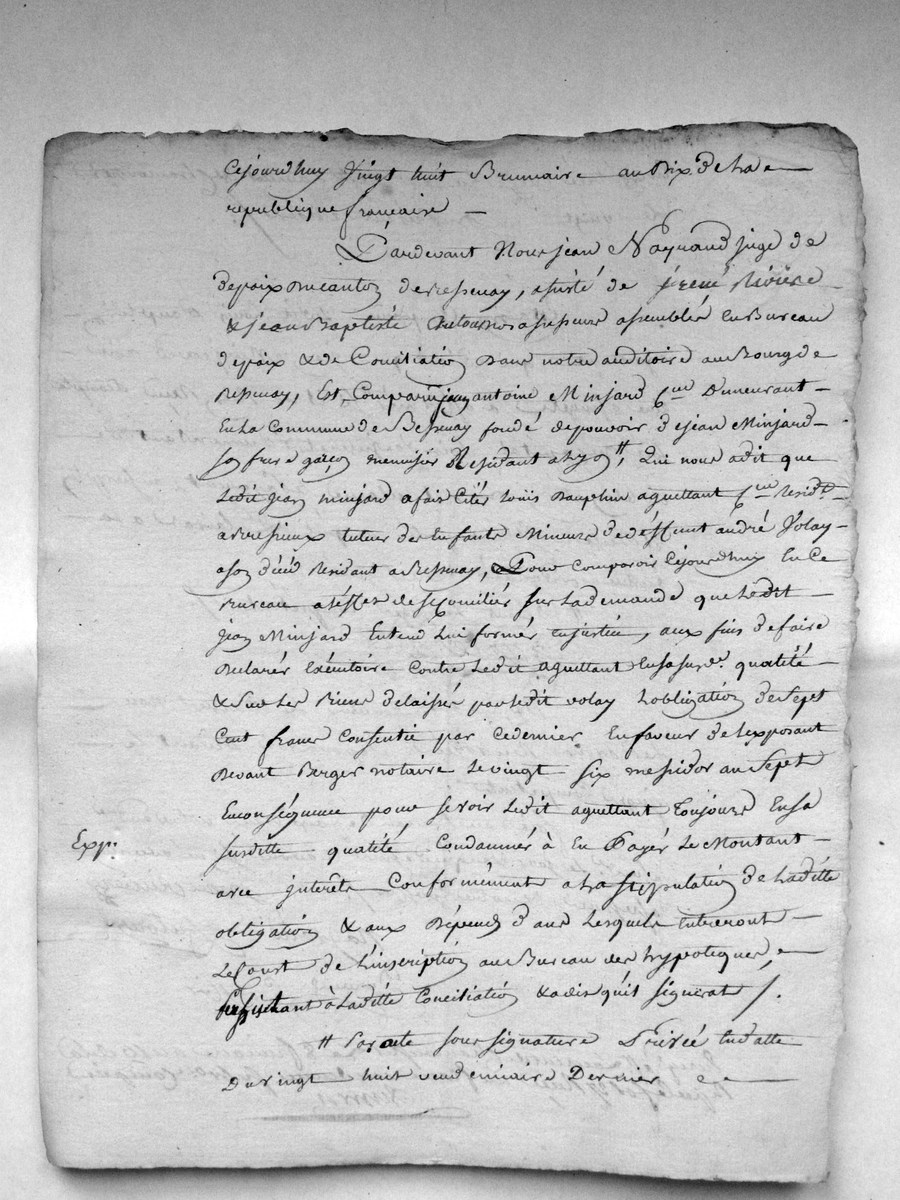 Cejourdhuy Vingt huit Brumaire an Dix de La
republique francaise
Pardevant Nous jean Nayrand juge de
de paix du canton de Bessenay, assisté de
& jean Baptiste assesseurs assemblés En Bureau
de paix & de Conciliation Dans notre auditoire au Bourg de
Bessenay, Est Comparu jean antoine Minjard Cyen Demeurant
En La Commune de Bessenay fondé de pouvoir de jean Minjard
son frere garçon menuisier Residant a Lyon //, Qui nous a dit que
Ledit jean minjard a fait Citér Louis Dauphin aguettant Cyen Resid.t
a Bressieux tuteur des Enfants Mineurs de deffunt andré Volay
a son déced Residant a Bessenay, Pour Comparoir Cejourdhuy En Ce
Bureau a l'effet de se Conciliér Sur La demande que Ledit
jean Minjard Entend Lui formér En justice, aux fins de faire
Declarér Exécutoire Contre Ledit aguettant En sa susd.e qualité
& Sur Les Biens delaissés par Ledit volay L'obligation de Sept
Cent francs Consentie par Ce dernier En faveur de L'exposant
Devant Berger notaire Le vingt Six messidor an Sept
En conséquence pour se voir Ledit aguettant Toujours En sa
Exp.
susditte qualité Condamnér à En Payér Le Montant
avec interêts Conformément a La stipulation de Laditte
obligation & aux Dépends dans Lesquels Entreront
Le Coust de L'inscription au Bureau des hypoteques,
persistant à Laditte Conciliation & a dit qu'il signerat /.
// Par acte sous signature Privée En datte
Du vingt huit vendemiaire Dernier